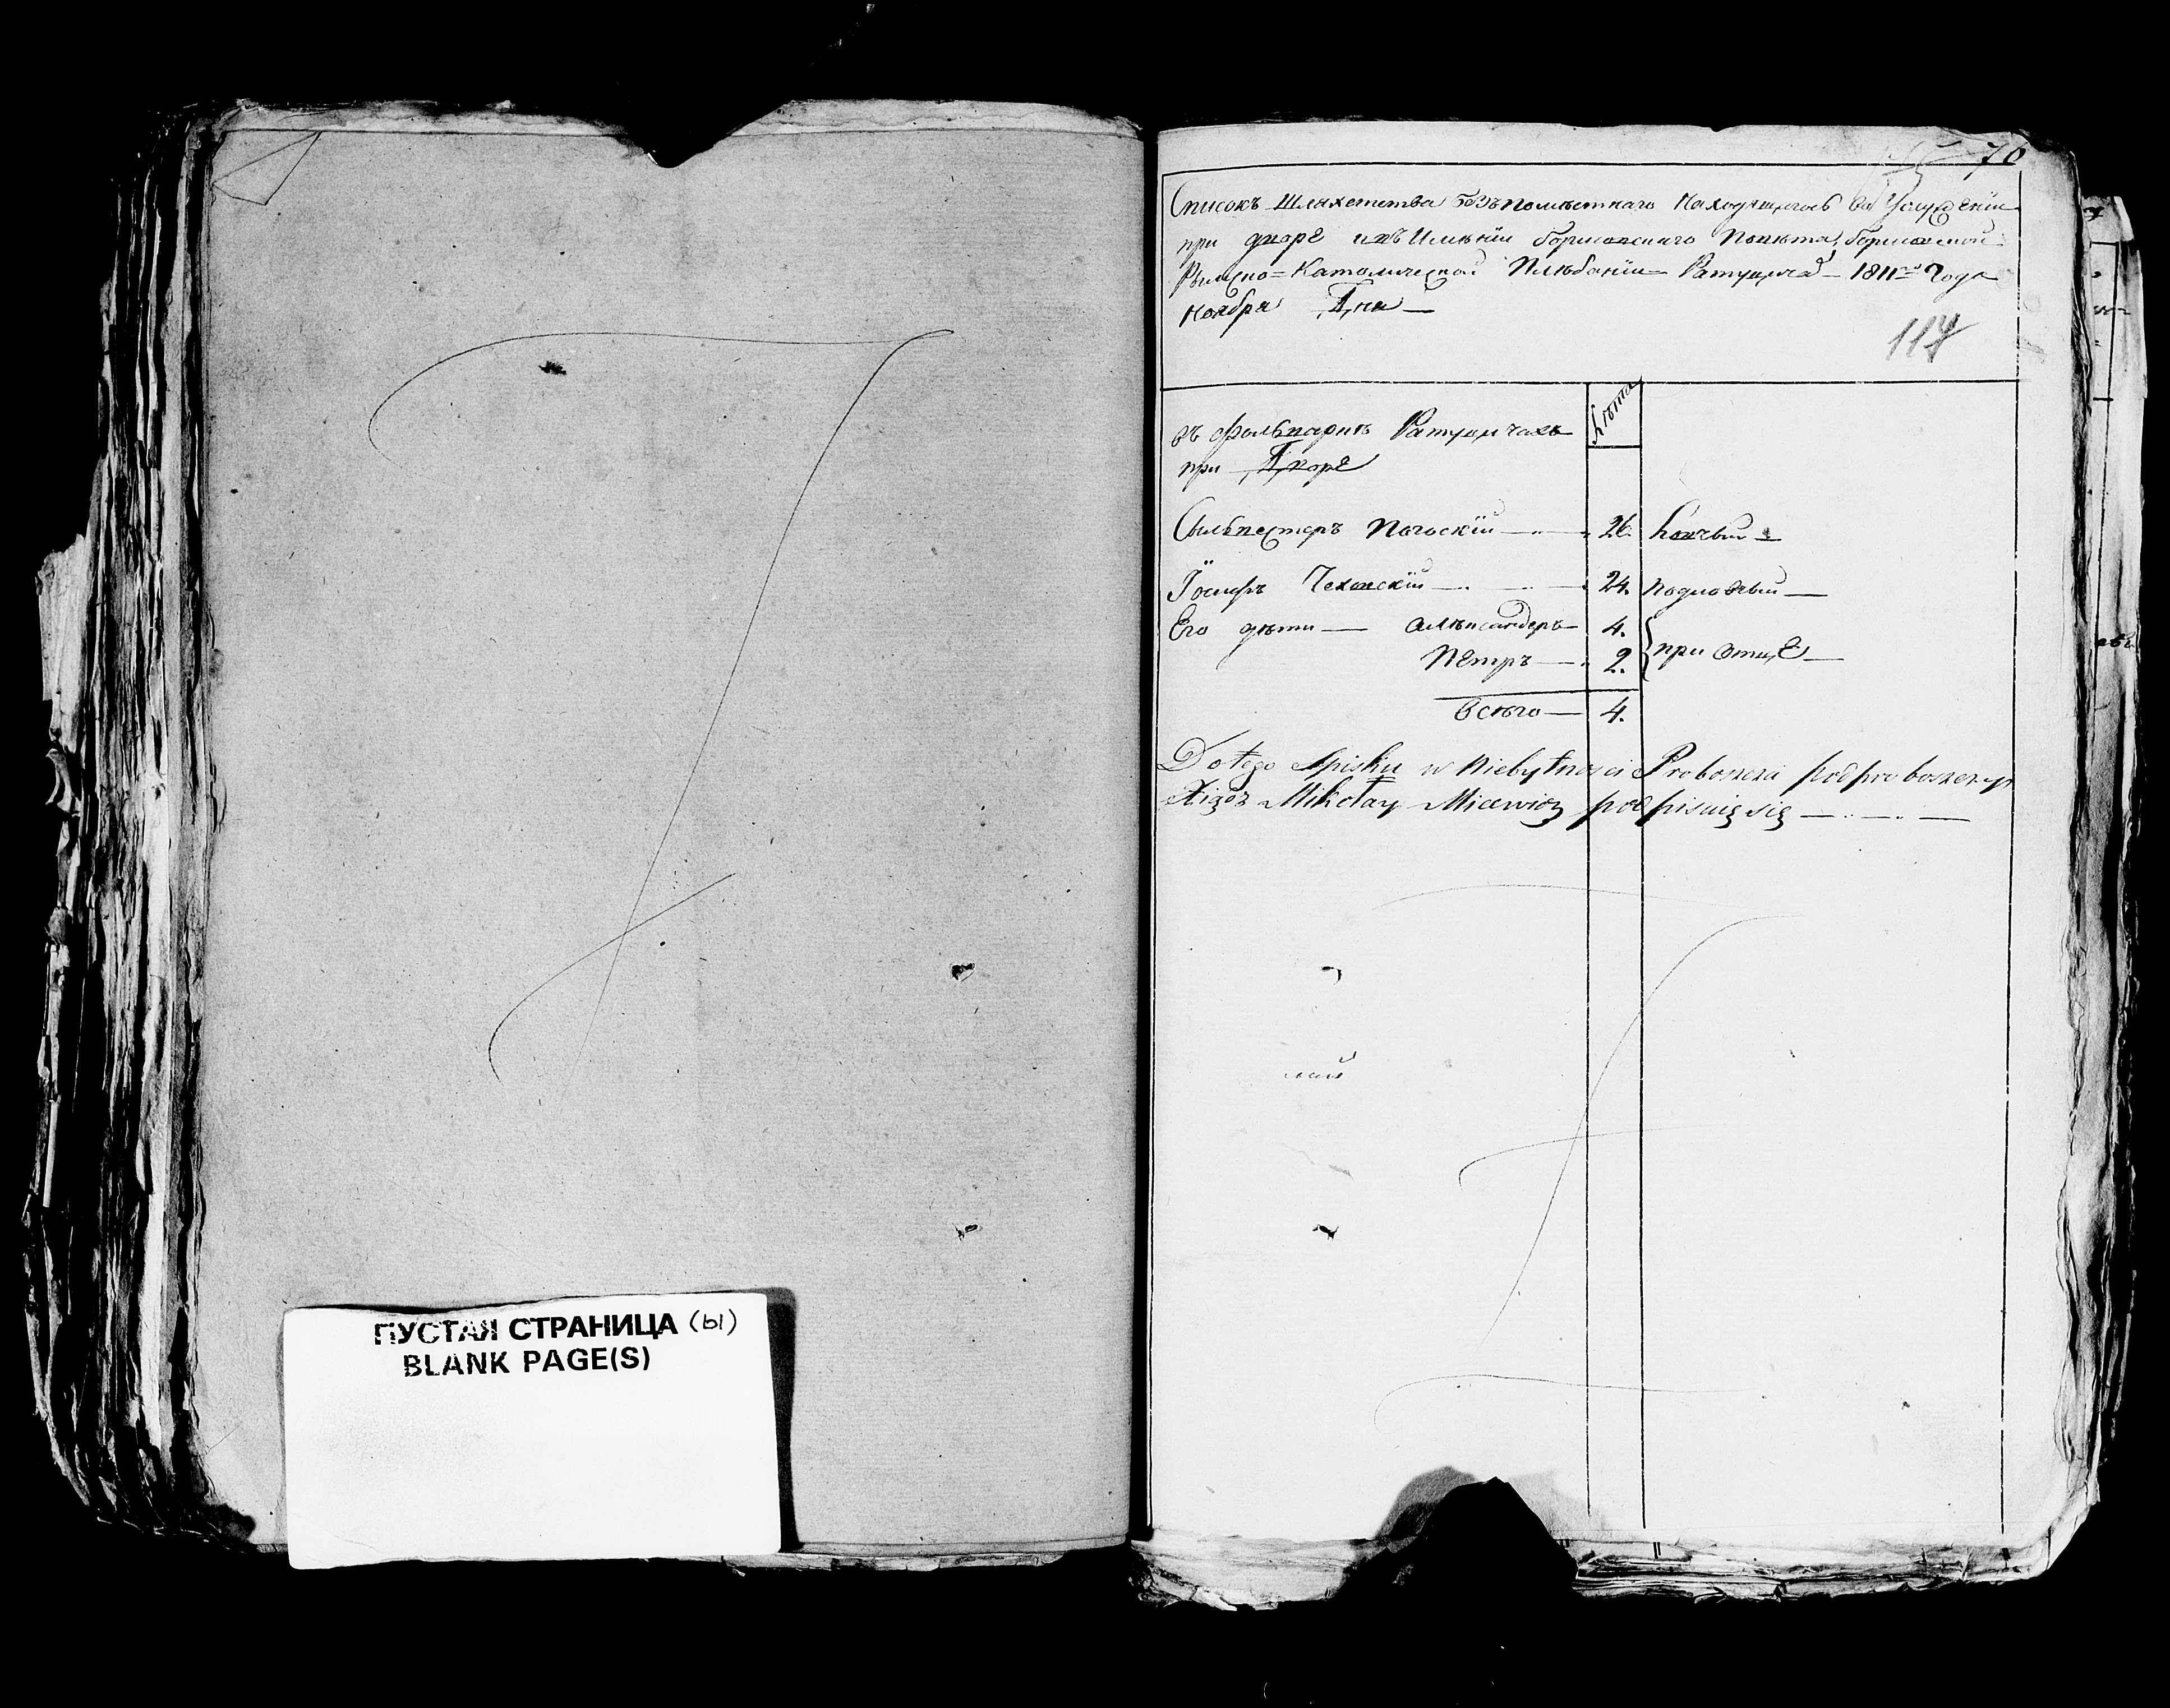 ПУСТАЯ СТРАНИЦА (ы)
BLANK PAGE(S)
76
Списокъ Шляхетства безъпомѣстнаго Находящагось въ Услуженіи
при дворе и въ Имѣніи борисовскаго Повѣта, борисовской
Римско=Католической Плѣбаніи Ратушича 1811го Года
Ноября Дня
117
Лѣта
въ Фольваркѣ Ратушичахъ
при Дворе
Сильвестеръ Погоскій 26.
Іосифъ Чеховскій 24.
Его дѣти Алѣксандеръ 4. при Отце
Петръ 2.
Всѣго 4.
Do tego Spisku w Niebytnosci Proboszcza podproboszczy
Xiądz Mikołay Micewicz podpisuię się